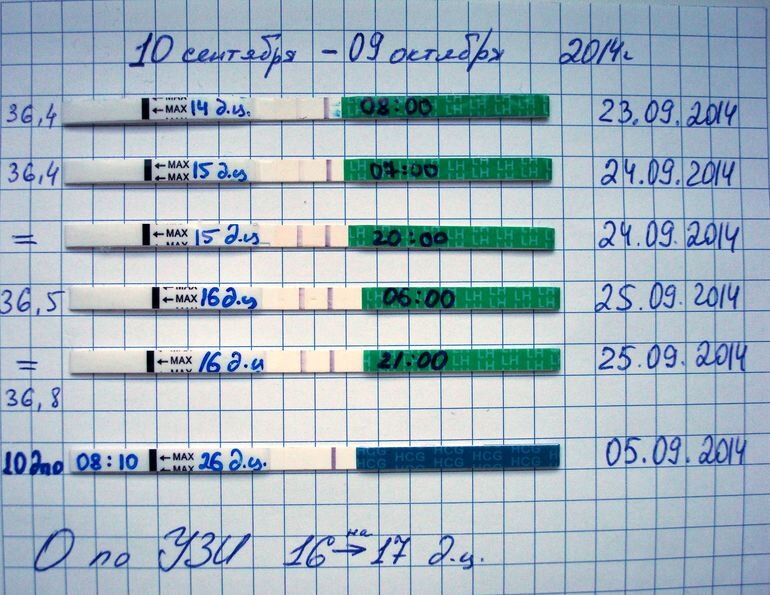 10 сентября - 09 октября 2014г
36,4 ←MAX 14 д.ц. 08:00 LH 23.09.2014
36,4 ←MAX 15 д.ц 07:00 LH 24.09.2014
= ←MAX 15 д.ц 20:00 LH 24.09.2014
36,5 ←MAX 16 д.ц 06:00 LH 25.09.2014
= ←MAX 16 д.ц 21:00 LH 25.09.2014
36,8
10 дпо 08:10 ←MAX 26 д.ц. HCG HCG HCG HCG 05.09.2014
О по УЗИ 16 на → 17 д.ц.